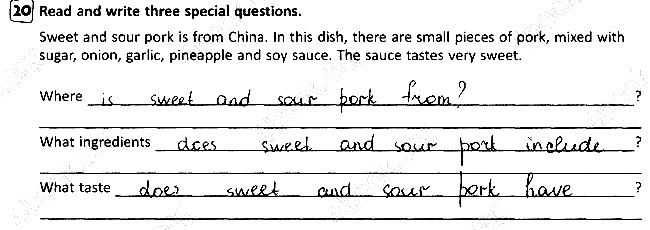 20 Read and write three special questions.
Sweet and sour pork is from China. In this dish, there are small pieces of pork, mixed with
sugar, onion, garlic, pineapple and soy sauce. The sauce tastes very sweet.
Where is sweet and sour pork from? ?
What ingredients does sweet and sour pork include ?
What taste does sweet and sour pork have ?